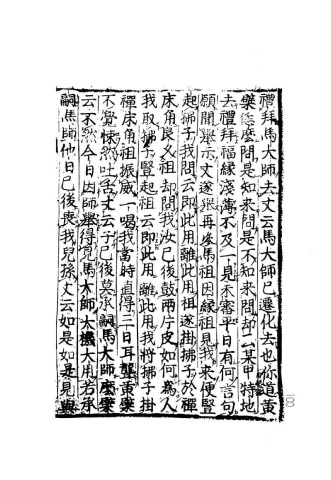 禮拜馬大師去丈云馬大師已遷化去也你道黃
檗恁麼問是知來問是不知來問却云某甲特地
去禮拜福緣淺薄不及一見未審平日有何言句
願聞舉示丈遂舉再參馬祖因緣祖見我來便竪
起拂子我問云即此用離此用祖遂掛拂子於禪
床角良久祖却問我汝已後鼓兩片皮如何為人
我取拂子竪起祖云即此用離此用我將拂子掛
禪床角祖振威一喝我當時直得三日耳聾黃檗
不覺悚然吐舌丈云子已後莫承嗣馬大師麼檗
云不然今日因師舉得見馬大師太機大用若承
嗣馬師他日已後喪我兒孫丈云如是如是見與